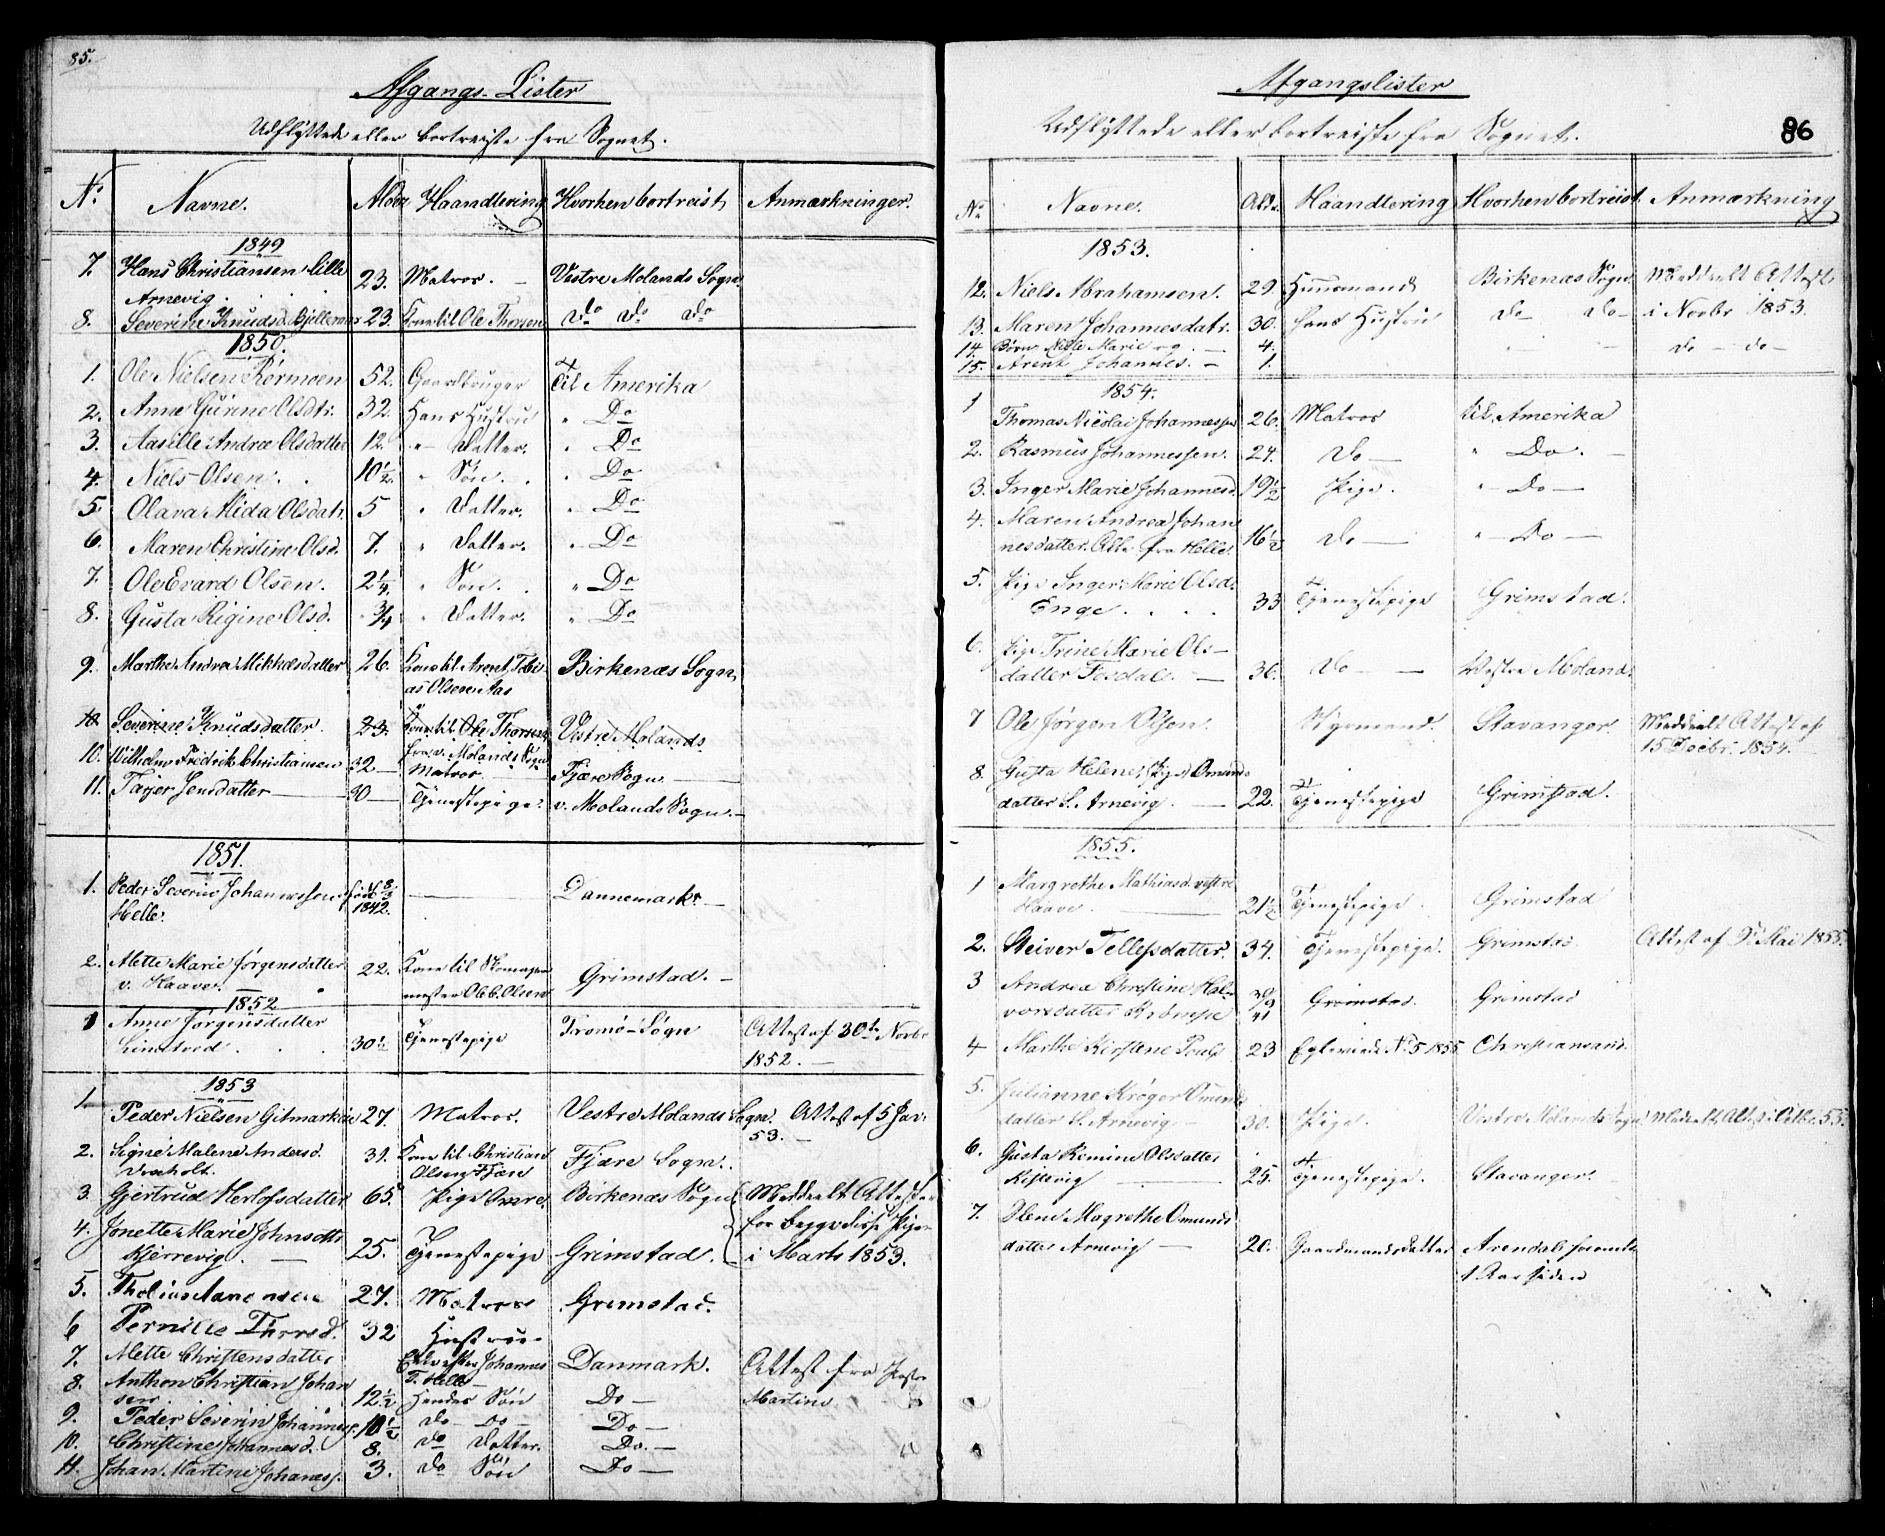 85.
Afgangs-Lister
Udflyttede eller bortreiste fra Sognet.
No Navne. Alder Haandtering Hvorhen bortreist Anmærkninger.
1849
7. Hans Christiansen Lille 23. Matros. Vestre Molands Sogn.
Arnevig.
8. Severine Knudsd. 23. Kone til Ole Thorsen Do Do Do
1850.
1. Ole Nielsen Rørmoen 52. Gaardbruger Til Amerika
2. Anne Gurine Olsdtr. 32. Hans Hustru " Do
3. Aasille Andrea Olsdatter 12. " Datter. " Do
4. Niels Olsen. 10½. " Søn. " Do
5. Olava Alida Olsdatr. 5 " Datter. " Do
6. Maren Christine Olsd. 7. " Datter. " Do
7. Ole Evard Olsen. 2¼. " Søn. " Do
8. Gusta Rigine Olsd. ¾ " Datter. " Do
9. Marthe Andrea Mikkelsdatter 26. Kone til Arent Tobi- Birkenæs Sogn
as Olsen Aas
10. Severine Knudsdatter. 23. Kone til Ole Thorsen Vestre Molands
fra v. Molands Sogn
10. Wilhelm Fredrik Christiansen 32 Matros. Fjære Sogn
11. Tarjer Jensdatter 30 Tjenestepige. v. Molands Sogn.
1851.
1. Peder Severin Johannessen født 1842. Dannemark.
Helle.
2. Mette Marie Jørgensdatter 22. Kone til Skomager- Grimstad.
v. Haave. mester Ole C. Olsen
1852
1 Anne Jørgensdatter 30½ Tjenestepige Tromø-Sogn Attest af 30te Novbr
1852.
1853
1. Peder Nielsen Gitmarkeie 27. Matros. Vestre Molands Sogn. Attest af 5 Jan.
53.
2. Signe Malene Andersd. 31. Kone til Christian Fjære Sogn.
Olsen Fjæn
3. Gjertrud Herlofsdatter 65. Pige Birkenæs Sogn Meddeelt Attester
for begge disse Piger
4. Jonette Marie Johnsdtr 25. Tjenestepige Grimstad. i Marts 1853.
Kjerrevig.
5. 27. Matros Grimstad.
6 Pernille 32 Hustru
7. Mette Christensdatter Johannes Danmark. Attest fra
T. Helle
8. Anthon Christian Johan 12½ Hendes Søn Do Martini
sen
9. Peder Severin Johannes. 10½ do do Do
10. Christine Johannesd. 8. do Datter. Do.
11. Johan Martine Johaness. 3. do Søn Do
86
Afgangslister
Udflyttede eller bortreiste fra Sognet.
No Navne. Ald. Haandtering Hvorhen bortreist Anmærkning
1853.
12. Niels Abrahamsen. 29. Huusmand Birkenæs Sogn Meddeelt Attest
13. Maren Johannesdatr. 30. hans Hustru do do i Novbr 1853.
14. Børn Marie og 4. do do
15. Arent Johannes. 1.
1854.
1 Thomas Nicolai Johannessen 26. Matros til Amerika
2. Rasmus Johannessen. 24. do " Do.
3. Inger Marie Johannesd. 19½ Pige. " Do
4. Maren Andrea Johan
nesdatter. Alle fra Helle. 16½ do " Do
5. Pige Inger Marie Olsd.
Enge. 33 Tjenestepige Grimstad.
6. Pige Trine Marie Ols-
datter Fosdal. 36. do Vestre Moland.
7 Ole Jørgen Olsen Stavanger. Meddeelt Attest af
15 Decbr. 1854.
8. Gusta Helene (Pige) Omunds
datter L. Arnevig. 22. Tjenestepige Grimstad.
1855.
1 Margrethe Mathiasd. vestre
Haave. 21½ Tjenestepige. Grimstad
2. Steiver Tellefsdatter. 34. Tjenestepige. Grimstad. Attest af Mai 1855.
3 Andrea Christine Hal-
vorsdatter Grimstad. Grimstad
4 Marthe Kirstene 23 No 5 1855 Christiansand.
5. Julianne Krøger Omunds
datter L. Arnevig 30. Pige. Vestre Molands Sogn Meddelt Attest i Octbr. 55.
6. Gusta Romine Olsdatter
Kislevig 25. Tjenestepige. Stavanger.
7. Olene Magrethe Omunds
datter Arnevig 20. Gaardmandsdatter Arendal
1 Aar siden